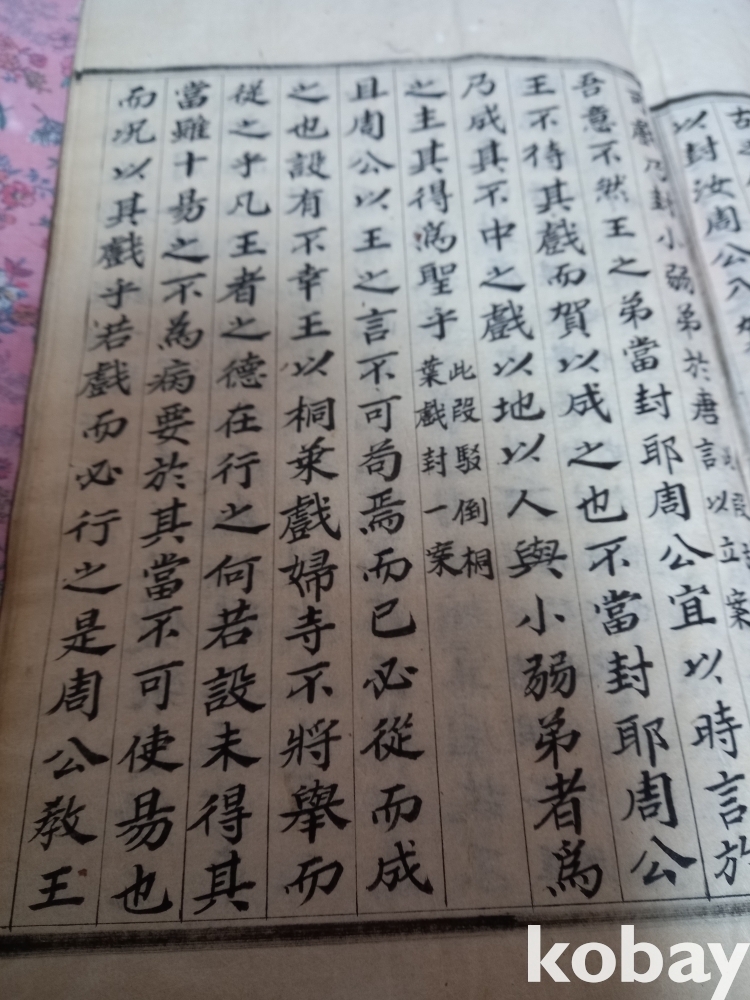 以封汝周公入
戲乃封小弱弟於唐
吾意不然王之弟當封耶周公宜以時言於
王不待其戲而賀以成之也不當封耶周公
乃成其不中之戲以地以人與小弱弟者為
之主其得為聖乎此段駁倒桐
葉戲封一案
且周公以王之言不可苟焉而已必從而成
之也設有不幸王以桐葉戲婦寺不將舉而
從之乎凡王者之德在行之何若設未得其
當雖十易之不為病要於其當不可使易也
而况以其戲乎若戲而必行之是周公教王
kobay